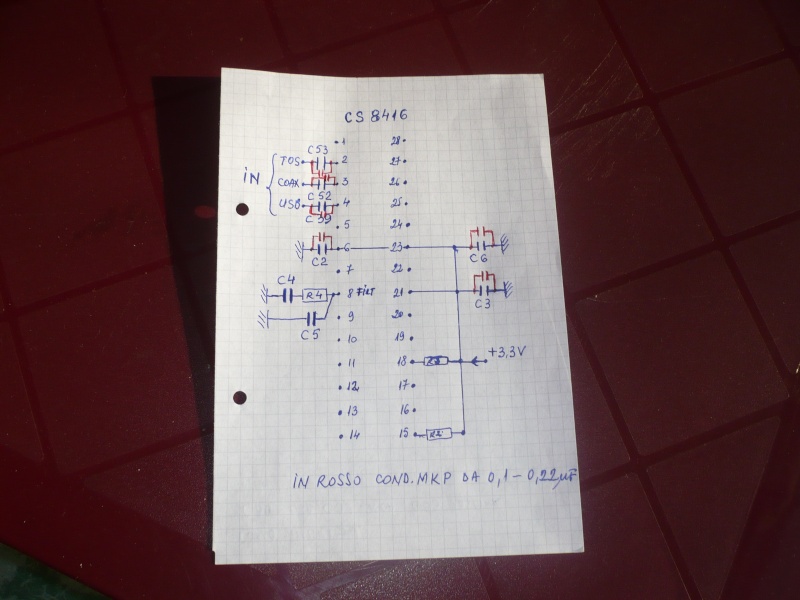 CS 8416
C53
1 28
TOS 2 27
iN COAX 3 26
C52
USB 4 25
C39
5 24
6 23
C2 C6
7 22
C4
R4 8 FiLT 21
C3
9 20
C5
10 19
+3,3V
11 18
12 17
13 16
14 15
iN ROSSO COND. MKP DA 0,1 - 0,22 µF